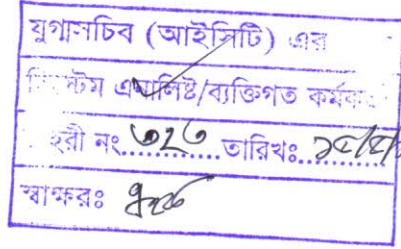 যুগ্মসচিব (আইসিটি) এর
সিস্টেম এনালিষ্ট/ব্যক্তিগত কর্মক
ডায়রী নং ৩২৩ তারিখঃ
স্বাক্ষরঃ